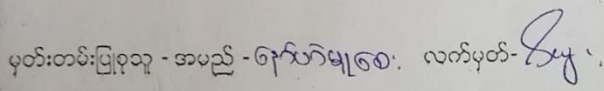 မှတ်တမ်းပြုစုသူ - အမည် - နော်ဟဲမူစေး လက်မှတ် -